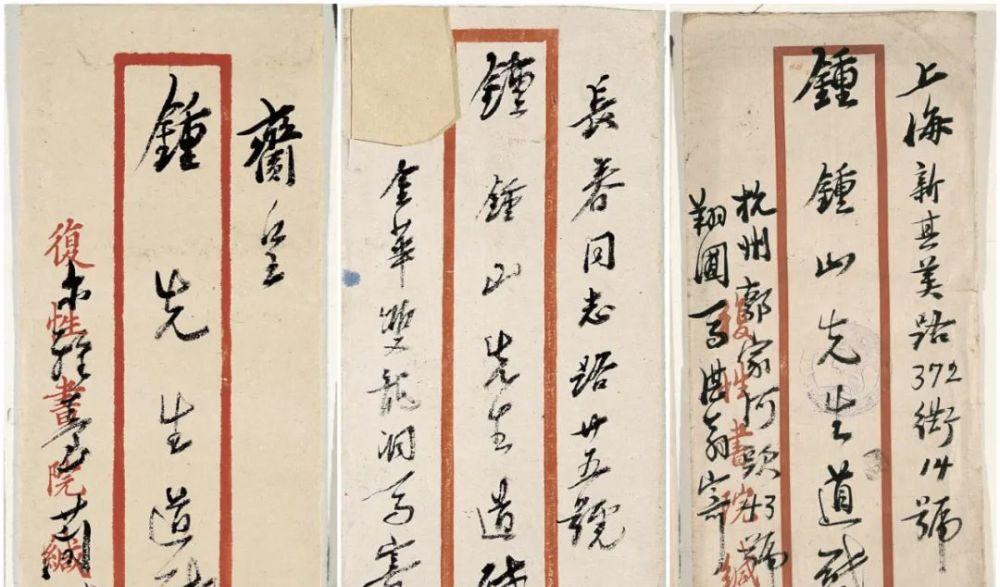 齎呈
鍾先生道
復性書院緘
長春同志路廿五號
鍾鍾山先生道
金華雙龍洞馬寄
上海新其美路372衖14號
鍾鍾山先生道
杭州郭家河頭43號
翔圃馬湛翁寄
復性書院緘